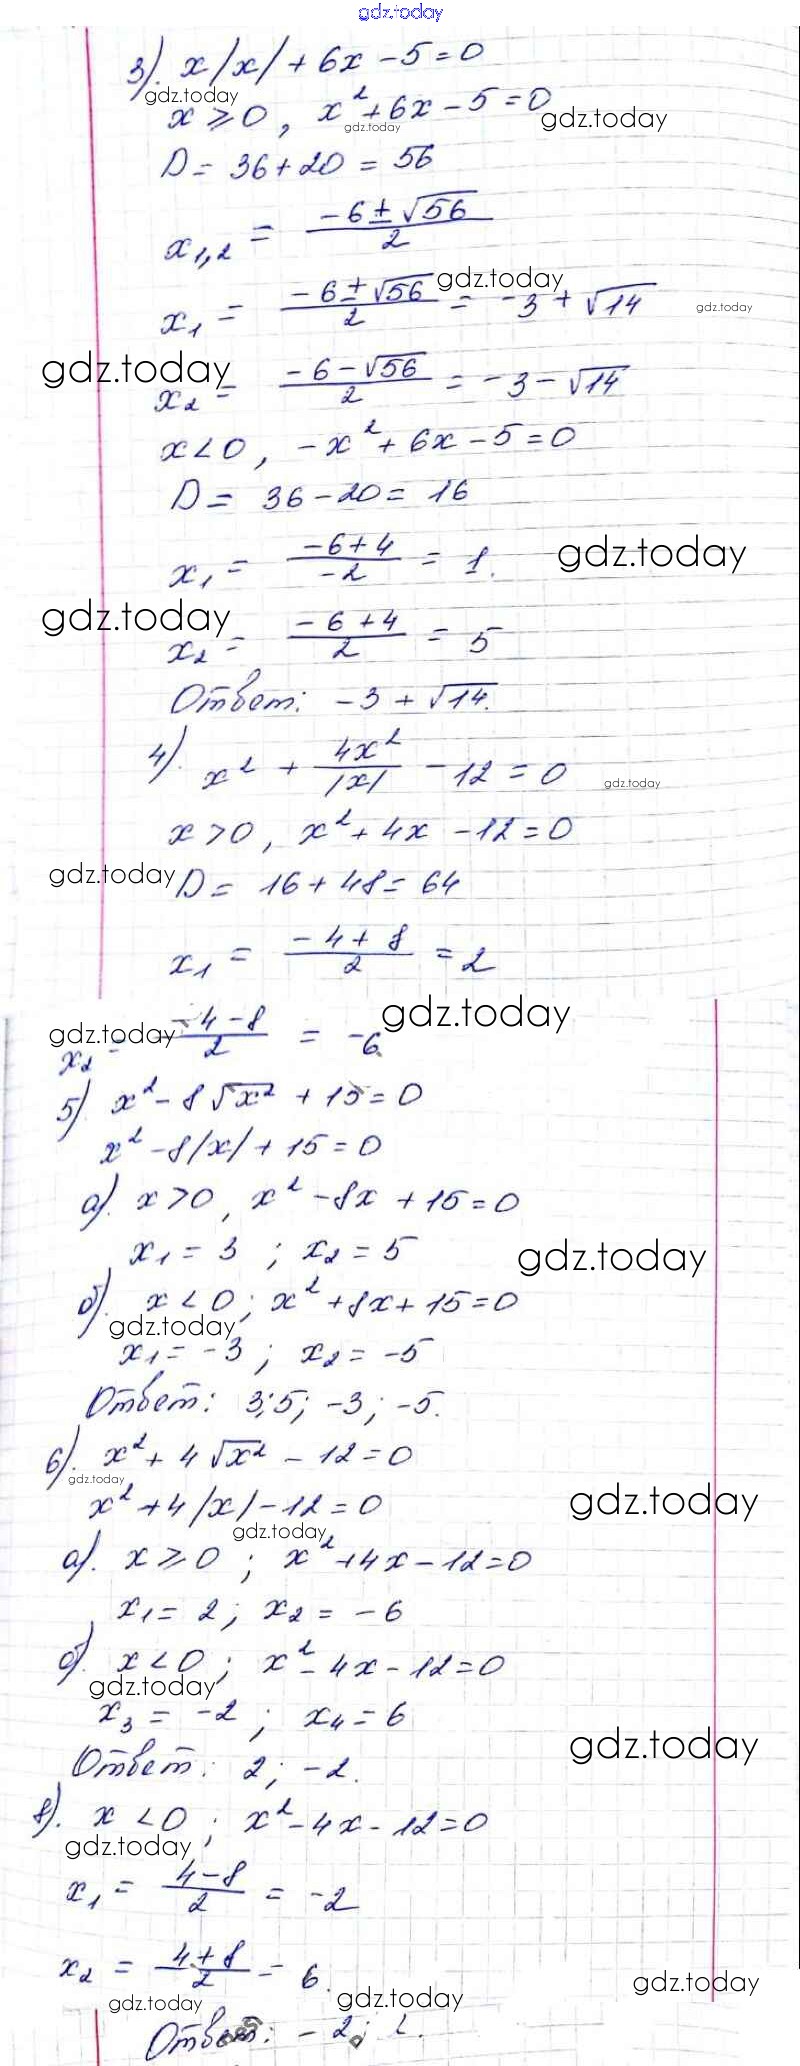 gdz.today
3). x|x| + 6x - 5 = 0
gdz.today
x ⩾ 0, x² + 6x - 5 = 0
gdz.today
gdz.today
D = 36 + 20 = 56
x₁,₂ = (-6 ± √56)/2
x₁ = (-6 ± √56)/2 = -3 + √14
gdz.today
gdz.today
gdz.today
x₂ = (-6 - √56)/2 = -3 - √14
x < 0, -x² + 6x - 5 = 0
D = 36 - 20 = 16
x₁ = (-6 + 4)/-2 = 1.
gdz.today
gdz.today
x₂ = (-6 + 4)/2 = 5
Ответ: -3 + √14.
4). x² + 4x²/|x| - 12 = 0
gdz.today
x > 0, x² + 4x - 12 = 0
gdz.today
D = 16 + 48 = 64
x₁ = (-4 + 8)/2 = 2
gdz.today
gdz.today
x₂ = (-4 - 8)/2 = -6
5). x² - 8√x² + 15 = 0
x² - 8|x| + 15 = 0
а). x > 0, x² - 8x + 15 = 0
x₁ = 3 ; x₂ = 5
gdz.today
б). x < 0; x² + 8x + 15 = 0
gdz.today
x₁ = -3 ; x₂ = -5
Ответ: 3; 5; -3; -5.
6). x² + 4√x² - 12 = 0
gdz.today
x² + 4|x| - 12 = 0
gdz.today
gdz.today
а). x ⩾ 0 ; x² + 4x - 12 = 0
x₁ = 2; x₂ = -6
б). x < 0 ; x² - 4x - 12 = 0
gdz.today
x₃ = -2 ; x₄ = 6
gdz.today
Ответ: 2; -2.
в). x < 0 ; x² - 4x - 12 = 0
gdz.today
x₁ = (4 - 8)/2 = -2
x₂ = (4 + 8)/2 = 6.
gdz.today
gdz.today
gdz.today
Ответ: -2;